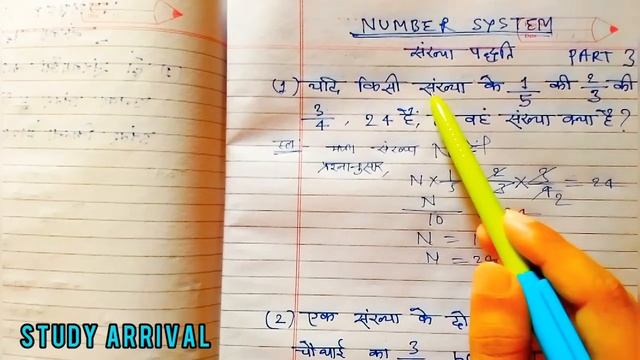 NUMBER SYSTEM
संख्या पद्धति PART 3
(1) यदि किसी संख्या के 1/5 की 2/3 की
3/4 , 24 है, वह संख्या क्या है?
हल- माना संख्या N
प्रश्नानुसार,
N × 1/5 2/3 × 3/4 2 = 24
N/10
N =
N = 24
(2) एक संख्या के दो
चौथाई का 3
STUDY ARRIVAL